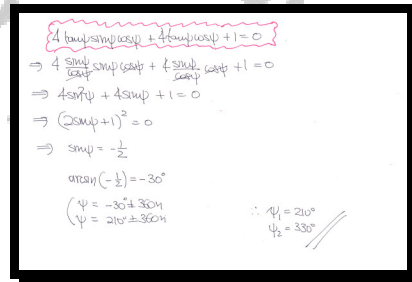 4 tanψ sinψ cosψ + 4 tanψ cosψ + 1 = 0
⇒ 4 sinψ/cosψ sinψ cosψ + 4 sinψ/cosψ cosψ + 1 = 0
⇒ 4sin²ψ + 4sinψ + 1 = 0
⇒ (2sinψ+1)² = 0
⇒ sinψ = -1/2
arcsen(-1/2) = -30°
ψ = -30° ± 360n
ψ = 210° ± 360n
∴ ψ₁ = 210°
ψ₂ = 330°